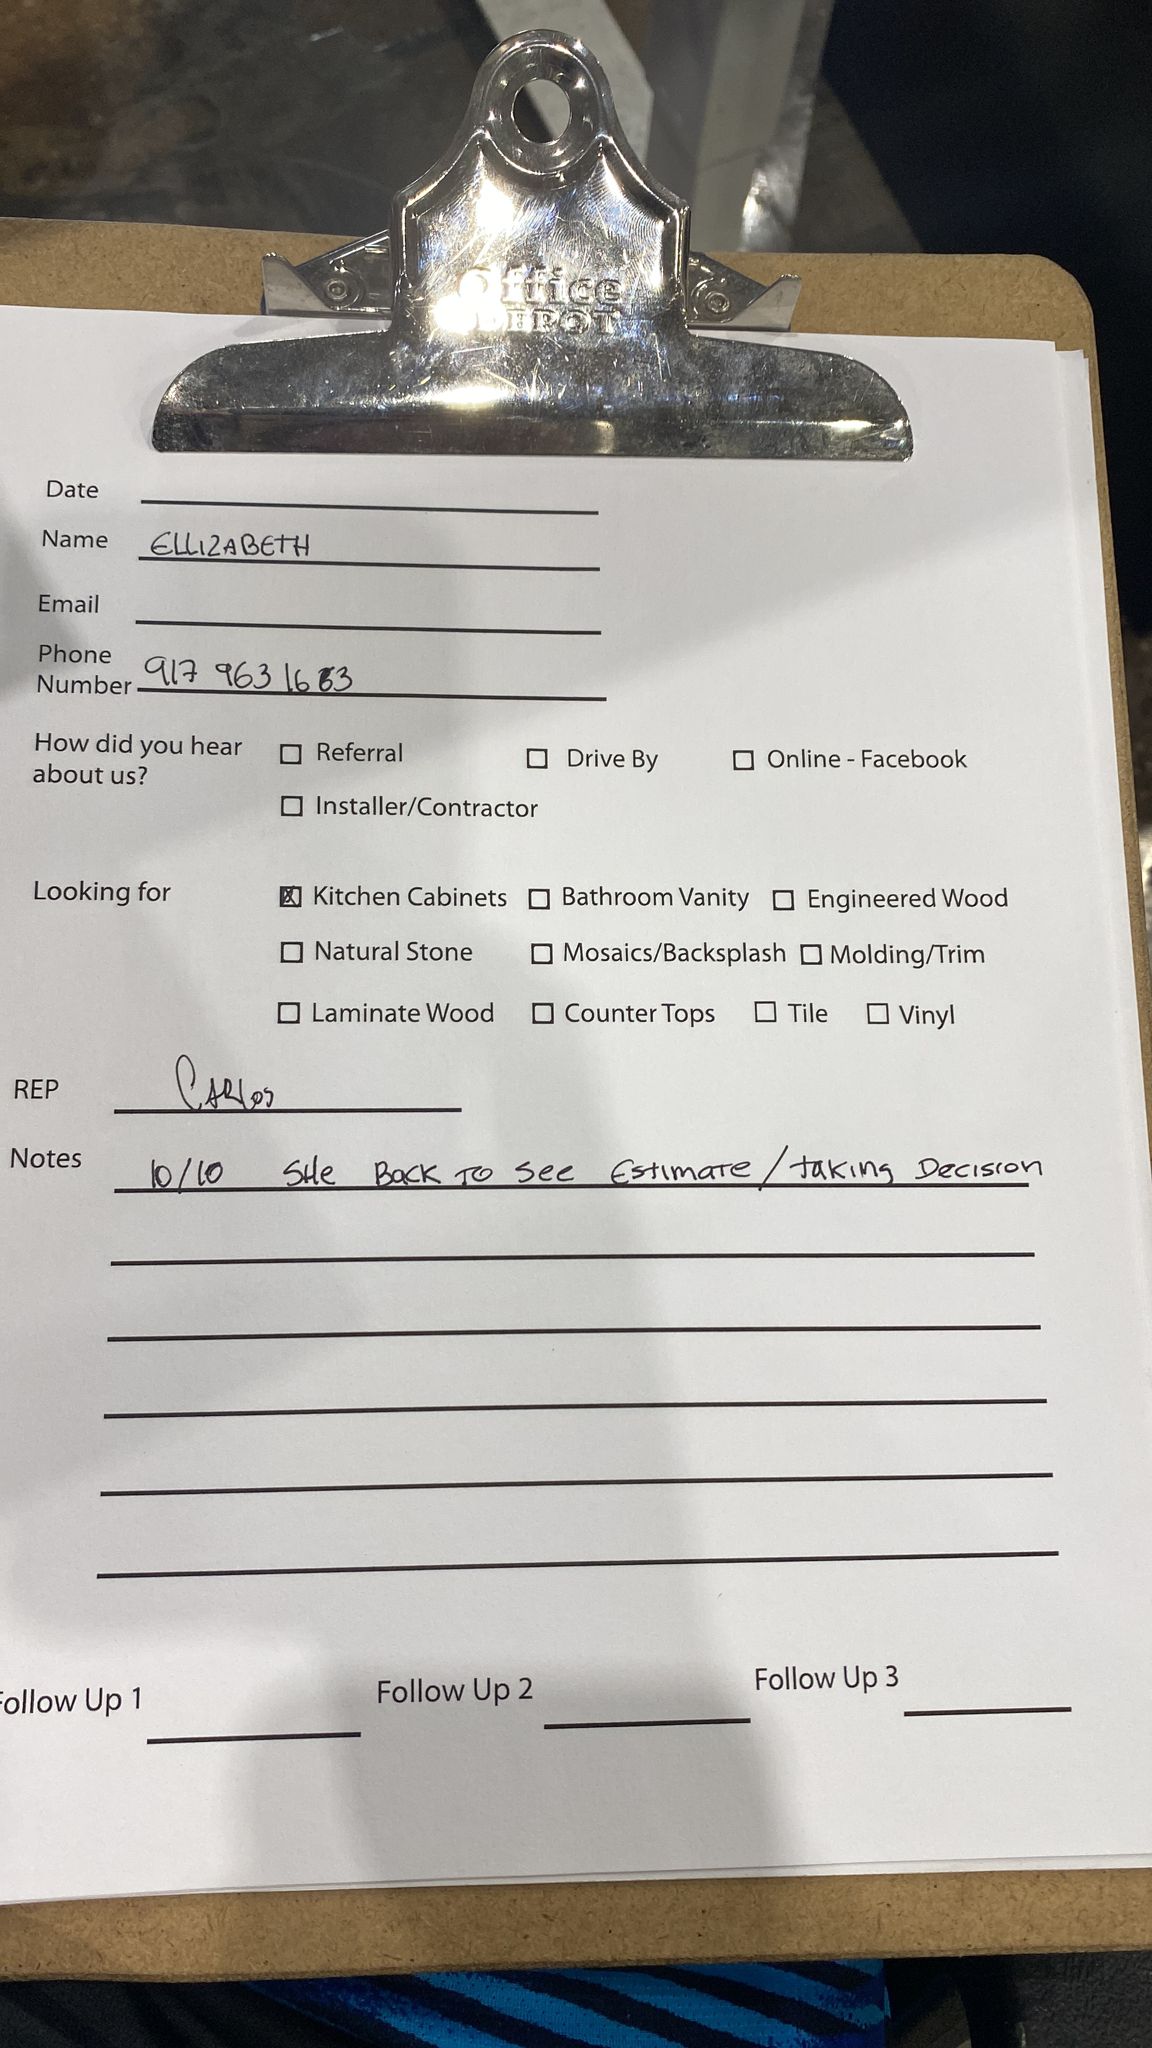 Office
DEPOT
Date
Name ELLIZABETH
Email
Phone
Number 917 963 16
How did you hear
about us?
Referral Drive By Online - Facebook
Installer/Contractor
Looking for
Kitchen Cabinets Bathroom Vanity Engineered Wood
Natural Stone Mosaics/Backsplash Molding/Trim
Laminate Wood Counter Tops Tile Vinyl
REP Carlos
Notes 10/10 SHe Back To See Estimate/taking Decision
Follow Up 2 Follow Up 3
ollow Up 1